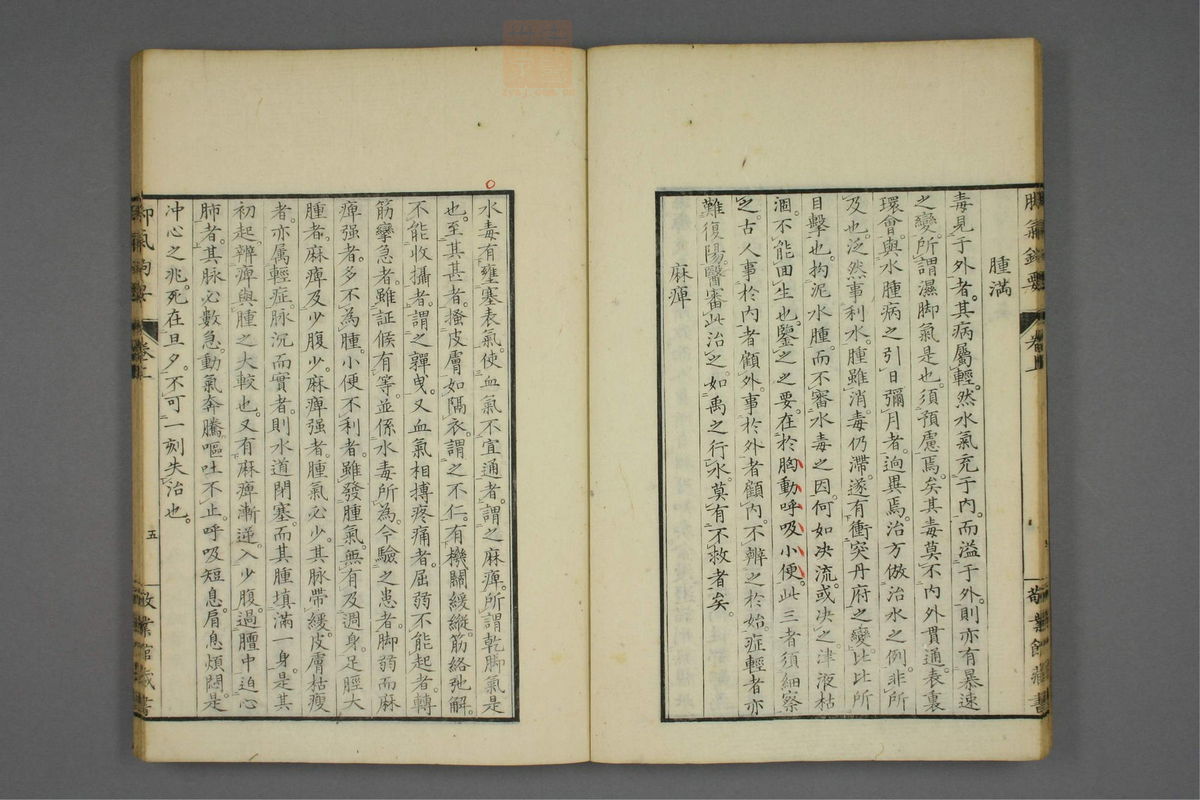 腫滿
毒見于外者。其病屬輕。然水氣充于内。而溢于外。則亦有暴速
之變。所謂濕脚氣是也。須預慮焉。矣其毒莫不内外貫通。表裏
環會。與水腫病之引日彌月者。迥異焉。治方倣治水之例。非所
及也。泛然事利水。腫雖消。毒仍滯。遂有衝突丹府之變。比比所
目擊也。拘泥水腫。而不審水毒之因。何如决流。或决之津液枯
涸。不能回生也。鑒之之要。在於胸動呼吸小便。此三者須細察
之。古人事於内者顧外。事於外者顧内。不辨之於始。症輕者亦
難復陽。醫審此治之。如禹之行水。莫有不救者矣。
麻痺
水毒有壅塞表氣。使血氣不宜通者。謂之麻痺。所謂乾脚氣是
也。至其甚者。搔皮膚如隔衣。謂之不仁。有機關緩縱。筋絡弛解。
不能收攝者。謂之嚲曳。又血氣相搏疼痛者。屈弱不能起者。轉
筋攣急者。雖証候有等。並係水毒所為。今驗之患者。脚弱而麻
痺强者。多不為腫。小便不利者。雖發腫氣。無有及週身。足脛大
腫者。麻痺及少腹少。麻痺强者。腫氣必少。其脉帶緩。皮膚枯瘦
者。亦屬輕症。脉沉而實者。則水道閉塞。而其腫填滿一身。是其
初起。辨痺與腫之大較也。又有麻痺漸逆。入少腹。過膻中。迫心
肺者。其脉必數急。動氣奔騰。嘔吐不止。呼吸短息。肩息煩悶。是
冲心之兆。死在旦夕。不可一刻失治也。
脚氣鈎要
卷上
五
敬業館藏書